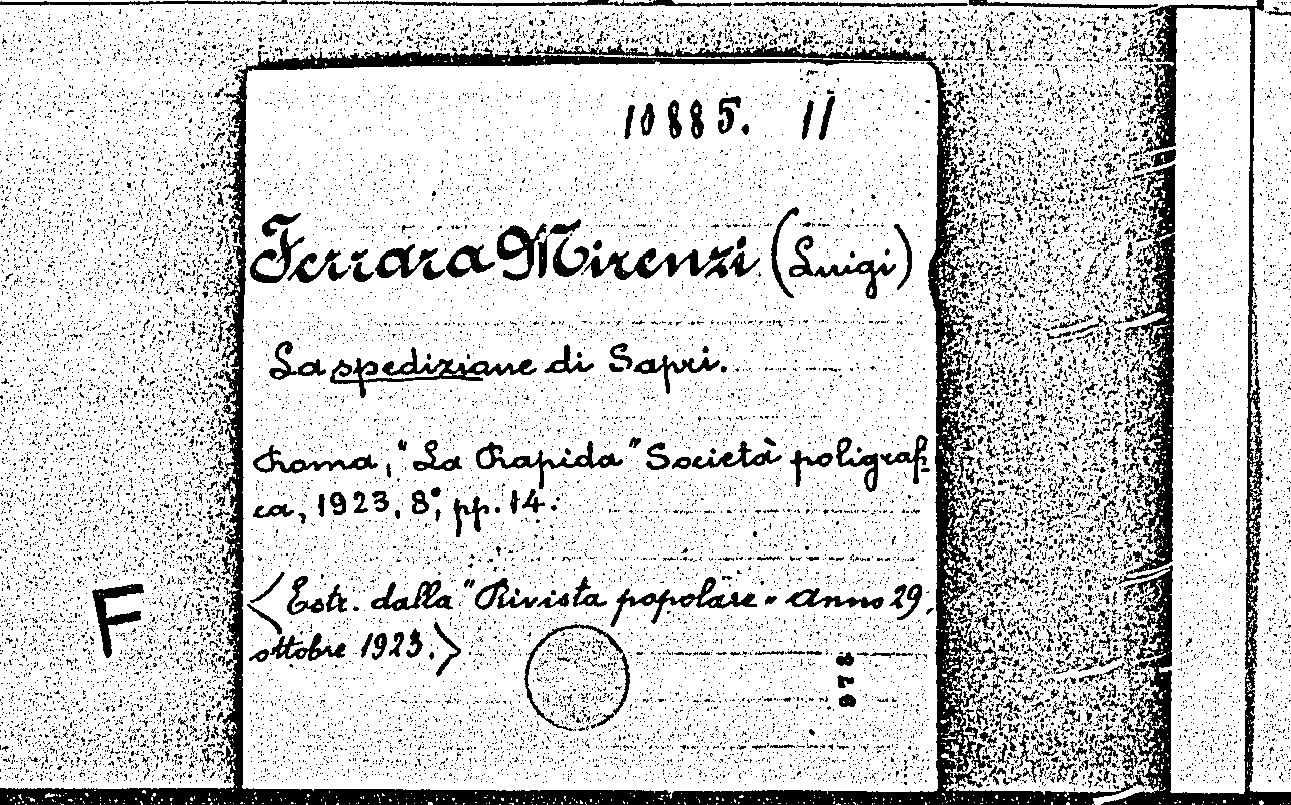 10885. 11
Ferrara Mirenzi (Luigi)
La spedizione di Sapri.
Roma, "La Rapida" Società poligrafi-
ca, 1923, 8°, pp. 14.
<Estr. dalla "Rivista popolare" anno 29,
ottobre 1923.>
F
978